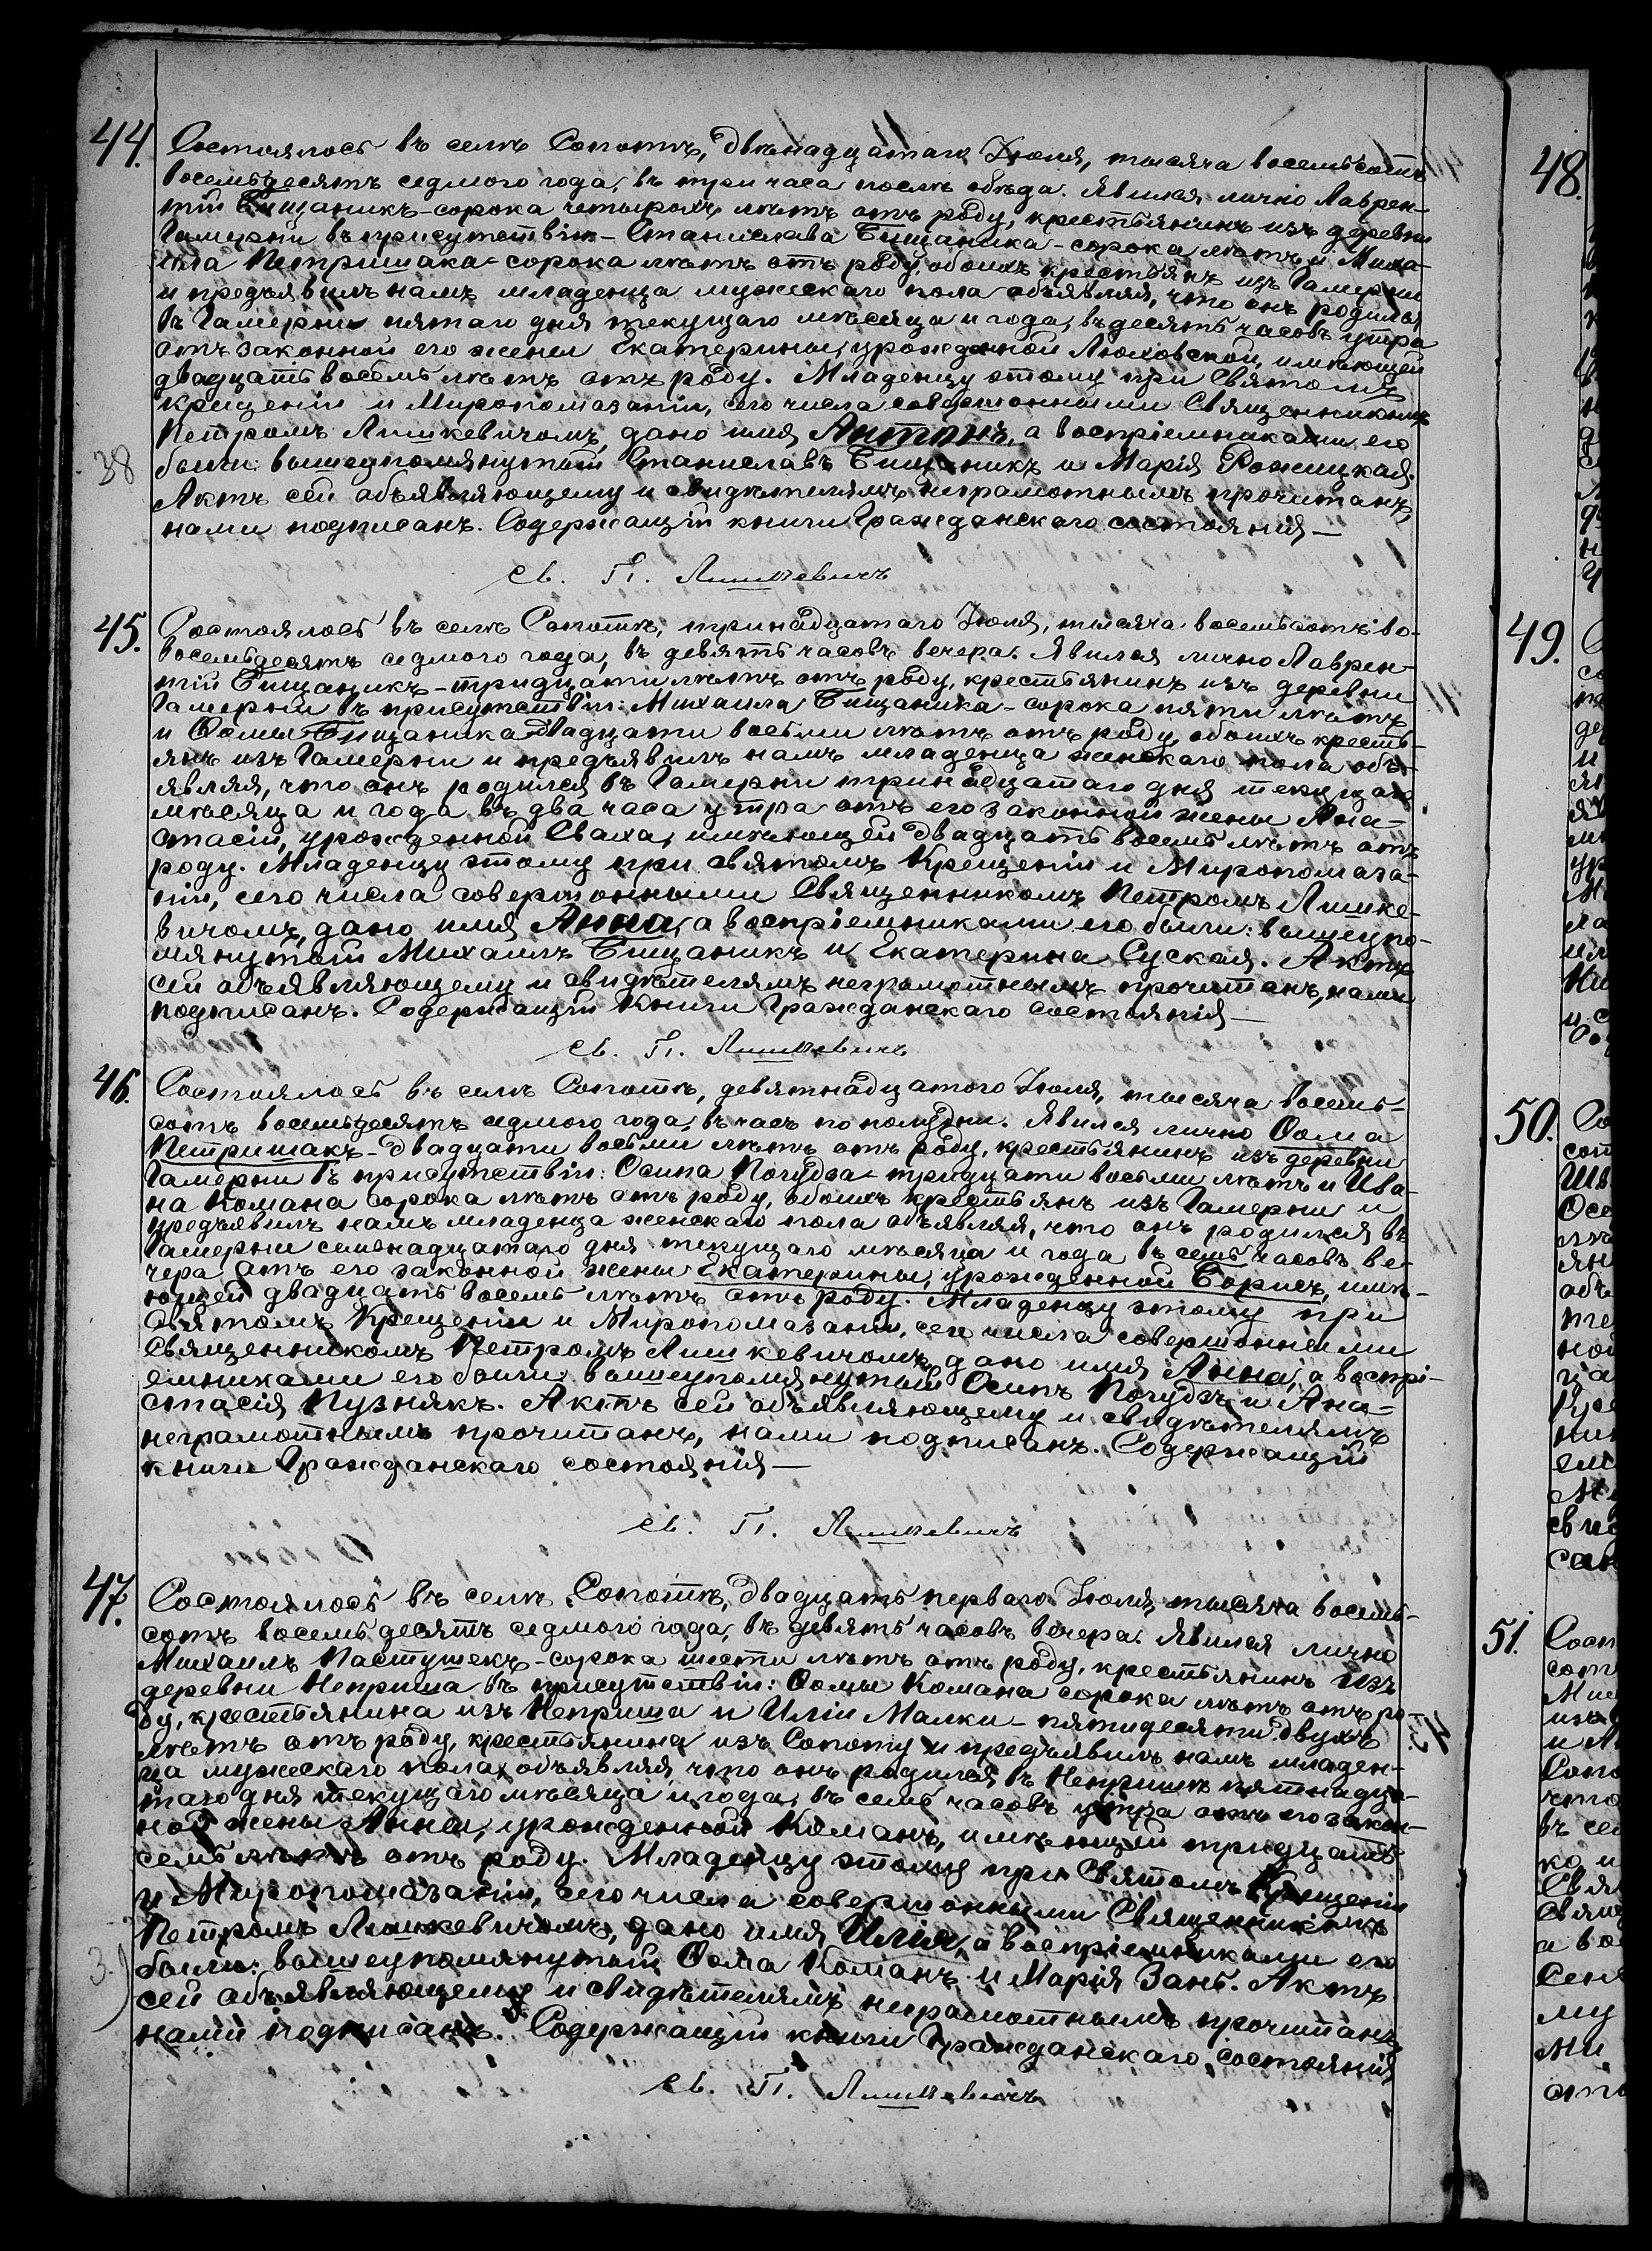 44. Состоялось въ селѣ Сопотѣ, двѣнадцатаго Іюля, тысяча восемьсотъ
восемьдесятъ седмого года, въ три часа послѣ обѣда. Явился лично Лаврен-
тій Бищаникъ - сорока четырохъ лѣтъ отъ роду, крестьянинъ изъ деревни
Гамерни въ присутствіи - Станислава Бищаника - сорока лѣтъ и Миха-
ила Петришака - сорока лѣтъ отъ роду, обоихъ крестьянъ изъ Гамерни
и предъявилъ намъ младенца мужескаго пола объявляя, что онъ родился
въ Гамерни пятаго дня текущаго мѣсяца и года, въ десять часовъ утра
отъ законной его жены Екатерины, урожденной Люховской, имѣющей
двадцать восемь лѣтъ отъ роду. Младенцу этому при Святомъ
Крещеніи и Миропомазаніи, сего числа совершонными Священникомъ
Петромъ Лишкевичомъ, дано имя Антонъ, а воспріемниками его
38
были: вышеупомянутый Станиславъ Бищаникъ и Марія Рожицкая.
Актъ сей объявляющему и свидѣтелямъ неграмотнымъ прочитанъ,
нами подписанъ. Содержащій книги Гражданскаго состоянія —
Св. П. Лишкевичъ
45. Состоялось въ селѣ Сопотѣ, тринадцатаго Іюля, тысяча восемьсотъ во-
восемьдесятъ седмого года, въ девять часовъ вечера. Явился лично Лаврен-
тій Бищаникъ - тридцати лѣтъ отъ роду, крестьянинъ изъ деревни
Гамерни въ присутствіи: Михаила Бищаника - сорока пяти лѣтъ
и Ѳомы Бищаника двадцати восьми лѣтъ отъ роду, обоихъ кресть-
янъ изъ Гамерни и предъявилъ намъ младенца женскаго пола объ-
являя, что онъ родился въ Гамерни тринадцатаго дня текущаго
мѣсяца и года въ два часа утра отъ его законной жены Ана-
стасіи, урожденной Сваха, имѣющей двадцать восемь лѣтъ отъ
роду. Младенцу этому при святомъ Крещеніи и Миропомаза-
ніи, сего числа совершонными Священникомъ Петромъ Лишке-
вичомъ, дано имя Анна, а воспріемниками его были: вышеупо-
мянутый Михаилъ Бищаникъ и Екатерина Суская. Актъ
сей объявляющему и свидѣтелямъ неграмотнымъ прочитанъ, нами
подписанъ. Содержащій книги Гражданскаго состоянія —
Св. П. Лишкевичъ
46. Состоялось въ селѣ Сопотѣ, девятнадцатого Іюля, тысяча восемь-
сотъ восемьдесятъ седмого года, въ часъ по полудни. Явился лично Ѳома
Петришакъ - двадцати восьми лѣтъ отъ роду, крестьянинъ изъ деревни
Гамерни въ присутствіи: Осипа Погудза - тридцати восьми лѣтъ и Ива-
на Комана сорока лѣтъ отъ роду, обоихъ крестьянъ изъ Гамерни и
предъявилъ намъ младенца женскаго пола объявляя, что онъ родился въ
Гамерни семнадцатаго дня текущаго мѣсяца и года въ семь часовъ ве-
чера отъ его законной жены Екатерины, урожденной Борисъ, имѣ-
ющей двадцать восемь лѣтъ отъ роду. Младенцу этому при
Святомъ Крещеніи и Миропомазаніи, сего числа совершонными
Священникомъ Петромъ Лишкевичомъ, дано имя Анна, а воспрі-
емниками его были: вышеупомянутый Осипъ Погудзъ и Ана-
стасія Пузнякъ. Актъ сей объявляющему и свидѣтелямъ
неграмотнымъ прочитанъ, нами подписанъ. Содержащій
книги Гражданскаго состоянія —
Св. П. Лишкевичъ
47. Состоялось въ селѣ Сопотѣ, двадцать перваго Іюля, тысяча восемь-
сотъ восемьдесятъ седмого года, въ девять часовъ вечера. Явился лично
Михаилъ Пастушекъ - сорока шести лѣтъ отъ роду, крестьянинъ изъ
деревни Неприша въ присутствіи: Ѳомы Комана сорока лѣтъ отъ ро-
ду, крестьянина изъ Неприша и Иліи Малки - пятидесяти двухъ
лѣтъ отъ роду, крестьянина изъ Сопоту и предъявилъ намъ младен-
ца мужескаго пола, объявляя, что онъ родился въ Непришѣ пятнадца-
таго дня текущаго мѣсяца и года, въ семь часовъ утра отъ его закон-
ной жены Анны, урожденной Команъ, имѣющей тридцать
семь лѣтъ отъ роду. Младенцу этому при Святомъ Крещеніи
и Миропомазаніи, сего числа совершонными Священникомъ
Петромъ Лишкевичомъ, дано имя Илія, а воспріемниками его
были: вышеупомянутый Ѳома Команъ и Марія Зань. Актъ
сей объявляющему и свидѣтелямъ неграмотнымъ прочитанъ,
нами подписанъ. Содержащій книги Гражданскаго состоянія
Св. П. Лишкевичъ
48.
49.
50.
51.